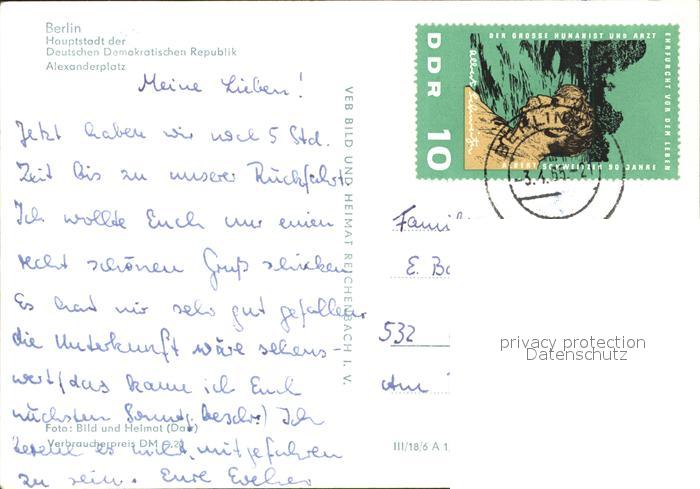 Berlin
Hauptstadt der
Deutschen Demokratischen Republik
Alexanderplatz
Meine Lieben!
Jetzt haben wir noch 5 Std.
Zeit bis zu unserer Rückfahrt.
Ich wollte Euch nur einen
recht schönen Gruß schicken
Es hat mir sehr gut gefallen
die Unterkunft wäre sehens-
wert (das kann ich Euch
nächsten Sonnt. beschr.) Ich
bereue es nicht, mitgefahren
zu sein. Eure
Foto: Bild und Heimat (Dar)
Verbraucherpreis DM 0,20
VEB BILD UND HEIMAT REICHENBACH I. V.
III/18/6 A 1
DDR 10
DER GROSSE HUMANIST UND ARZT
EHRFURCHT VOR DEM LEBEN
ALBERT SCHWEITZER 90 JAHRE
Albert Schweitzer
BERLIN
-3.4.
Famili
E. Ba
532
Am
privacy protection
Datenschutz